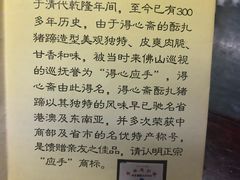 于清代乾隆年间，至今已有300
多年历史，由于得心斋的酝扎
猪蹄造型美观独特、皮爽肉脆、
甘香和味，被当时来佛山巡视
的巡抚誉为“得心应手”，得
心斋由此得名，得心斋酝扎猪
蹄以其独特的风味早已驰名省
港澳及东南亚，并多次荣获中
商部及省市的名优特产称号，
是馈赠亲友之佳品，请认明正宗
“应手”商标。